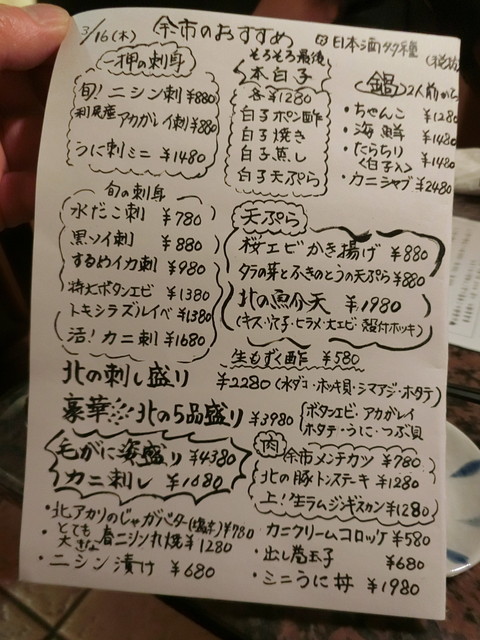 3/16(木) 余市のおすすめ
日本酒多種
一押の刺身
旬!ニシン刺 ¥880
利尻産アカガレイ刺 ¥880
うに刺ミニ ¥1480
そろそろ最後
本白子
各¥1280
白子ポン酢
白子焼き
白子蒸し
白子天ぷら
鍋 2人前から
・ちゃんこ ¥1280
・海鮮 ¥1480
・たらちり ¥1480
〈白子入〉
・カニシャブ ¥2480
旬の刺身
水だこ刺 ¥780
黒ソイ刺 ¥880
するめイカ刺 ¥980
特大ボタンエビ ¥1380
トキシラズルイベ ¥1380
活!カニ刺 ¥1680
天ぷら
桜エビかき揚げ ¥880
タラの芽とふきのとうの天ぷら ¥880
北の魚介天 ¥1980
(キス・穴子・ヒラメ・大エビ・殻付ホッキ)
生もずく酢 ¥580
北の刺し盛り ¥2280(水ダコ・ホッキ貝・シマアジ・ホタテ)
豪華 北の5品盛り ¥3980
ボタンエビ・アカガレイ
ホタテ・うに・つぶ貝
毛がに姿盛り ¥4380
カニ刺し ¥1680
肉
余市メンチカツ ¥780
北の豚トンステーキ ¥1280
上!生ラムジンギスカン ¥1280
・北アカリのじゃがバター(塩辛) ¥780
・とても大きな春ニシン焼 ¥1280
・ニシン漬け ¥680
カニクリームコロッケ ¥580
・出し巻玉子 ¥680
・ミニうに丼 ¥1980